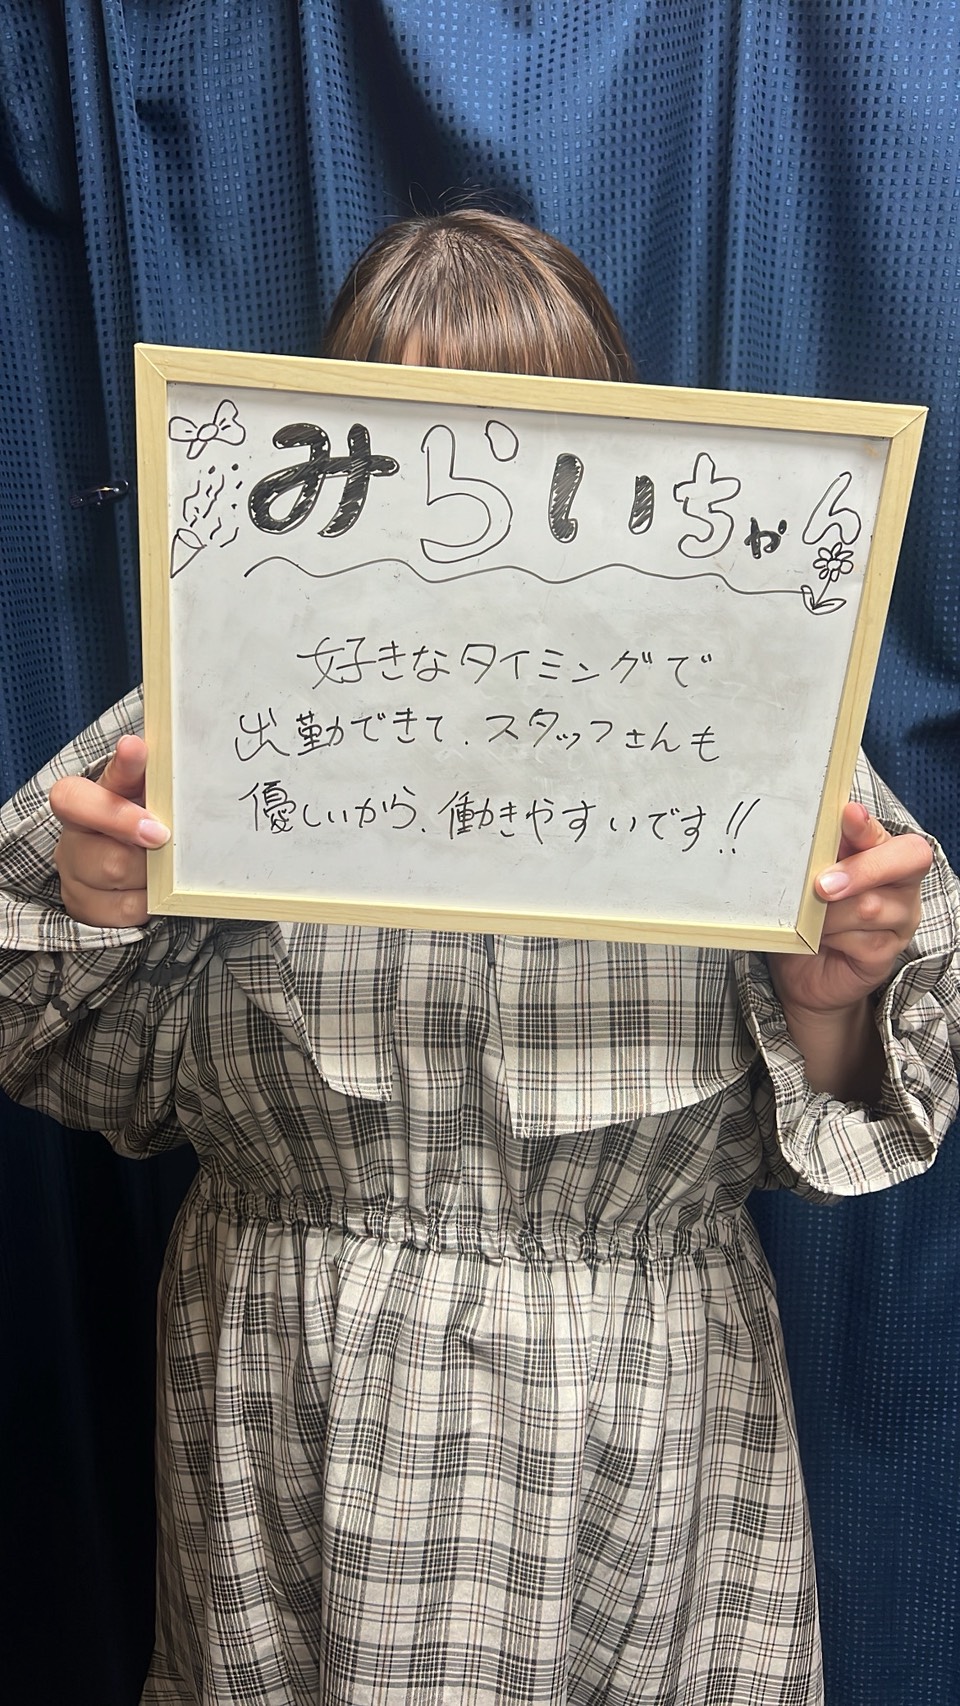 みらいちゃん
好きなタイミングで
出勤できて、スタッフさんも
優しいから、働きやすいです!!